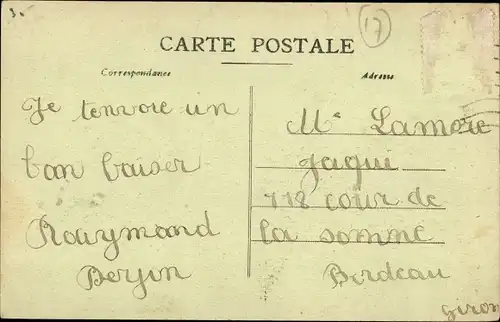 3.
17
CARTE POSTALE
Correspondance
Adresse
Je tenvoie un
bon baiser
Raymond
M.e Lamore
Jaqui
118 cour de
la somme
Bordeau
giron